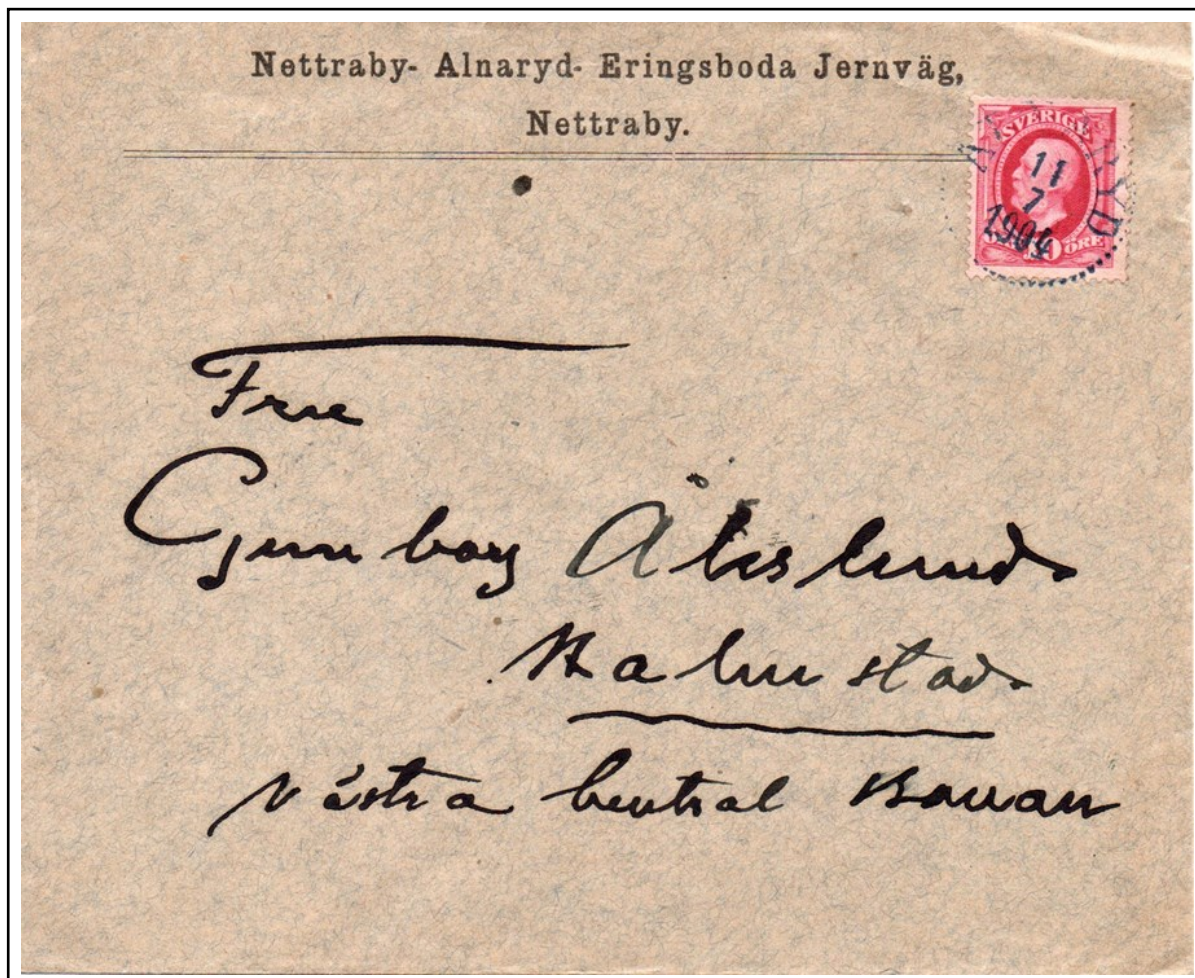 Nettraby- Alnaryd- Eringsboda Jernväg,
Nettraby.
SVERIGE
11
7
1904
10 ÖRE
RYD
Fru
Gunborg
Halmstad
Västra Central Banan